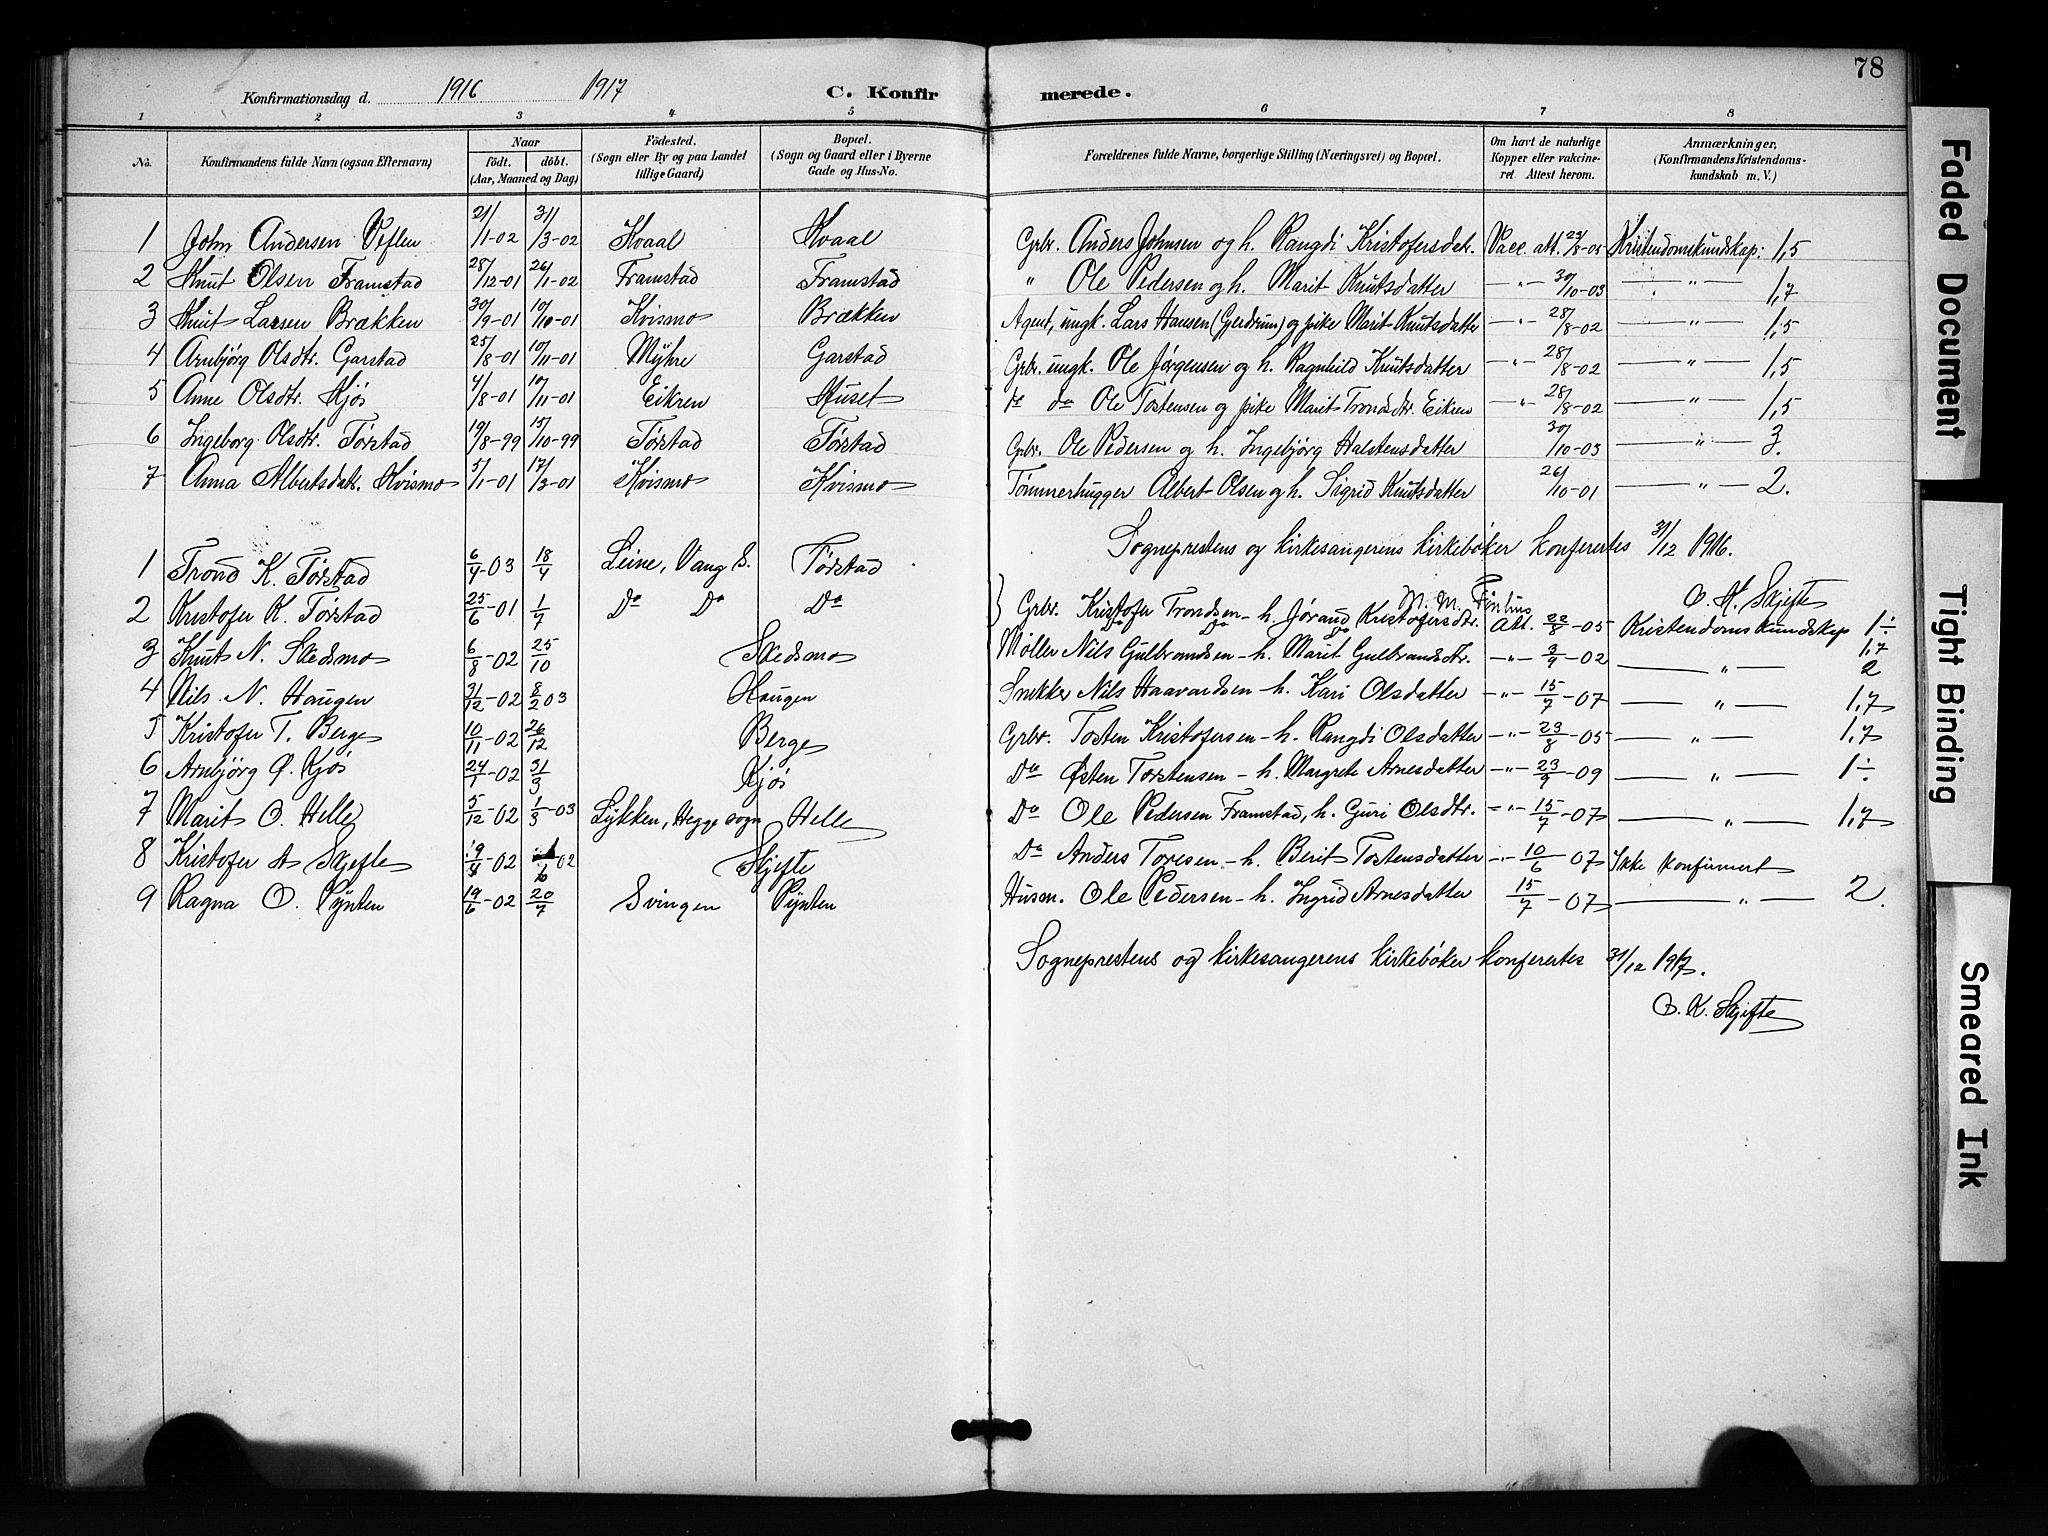 78
Konfirmationsdag d. 1916 1917 C. Konfirmerede.
1 2 3 4 5 6 7 8
No. Konfirmandens fulde Navn (ogsaa Efternavn) Naar födt. döbt. (Aar, Maaned og Dag) Födested. (Sogn eller By og paa Landet tillige Gaard) Bopæl. (Sogn og Gaard eller i Byerne Gade og Hus-No. Forældrenes fulde Navne, borgerlige Stilling (Næringsvei) og Bopæl. Om havt de naturlige Kopper eller vakcineret Attest herom. Anmærkninger, (Konfirmandens Kristendomskundskab m. V.)
1 John Andersen Veflen 21/1-02 31/3-02 Kvaal Kvaal Grbr. Anders Johnsen og h. Rangdi Kristofersdat. Vacc. att. 23/8-05 Kristendomskundskap: 1,5
2 Knut Olsen Framstad 28/12-01 26/1-02 Framstad Framstad " Ole Pedersen og h. Marit Knutsdatter —"— 30/10-03 —"— 1,7
3 Knut Larsen Brækken 30/9-01 10/10-01 Kvismo Brækken Agent, ungk. Lars Hansen (Gjerdrum) og pike Marit Knutsdatter —"— 28/8-02 —"— 1,5
4 Arnbjörg Olsdtr. Garstad 25/8-01 10/11-01 Myhre Garstad Grbr. ungk. Ole Jørgensen og h. Ragnhild Knutsdatter —"— 28/8-02 —"— 1,5
5 Anne Olsdtr. Kjös 4/8-01 10/11-01 Eikren Huset do do Ole Tostensen og pike Marit Trondsdtr. Eikren —"— 28/8-02 —"— 1,5
6 Ingeborg Olsdtr. Tørstad 19/8-99 15/10-99 Tørstad Tørstad Grbr. Ole Pedersen og h. Ingebjörg Halstensdatter 30/10-03 —"— 3.
7 Anna Albertsdatr. Kvismo 5/1-01 17/3-01 Kvismo Kvismo Tømmerhugger Albert Olsen og h. Sigrid Knutsdatter 26/10-01 —"— 2.
Sogneprestens og kirkesangerens kirkebøker konferertes 31/12 1916.
M. M. O. K. Skjefte
1 Trond K. Tørstad 6/4-03 18/4 Leine, Vang S. Tørstad
2 Kristofer K. Tørstad 25/6-01 1/7 Do Do Do } Grbr. Kristofer Trondsen - h. Jørand Kristofersdtr. Att. 22/8-05 Kristendomskundskap 1÷
Do Do Do 1,7
3 Knut N. Skedsmo 6/8-02 25/10 Skedsmo Møller Nils Gulbrandsen - h. Marit Gulbrandsdtr. —"— 3/9-02 —"— 2
4 Nils N. Haugen 31/12-02 8/2 03 Haugen Snekker Nils Haavardsen - h. Kari Olsdatter —"— 15/7-07 —"— 1,7
5 Kristofer T. Berge 10/11-02 26/12 Berge Grbr. Tosten Kristofersen - h. Rangdi Olsdatter —"— 23/8-05 —"— 1,7
6 Arnbjörg Ø. Kjös 24/1-02 31/3 Kjös Do Østen Torstensen - h. Margrete Arnesdatter —"— 23/9-09 —"— 1÷
7 Marit O. Helle 5/12-02 1/3-03 Lykken, Hegge sogn Helle Do Ole Pedersen Framstad, h. Guri Olsdtr. —"— 15/7-07 —"— 1,7
8 Kristofer A Skjefte 9/4-02 /6 02 Skjefte Do Anders Toresen - h. Berit Tostensdatter —"— 10/6-07 Ikke konfirmert
9 Ragna O. Pynten 19/6-02 20/7 Svingen Pynten Husm. Ole Pedersen - h. Ingrid Arnesdatter 15/7-07 —"— 2.
Sogneprestens og kirkesangerens kirkebøker konferertes 31/12 1917.
O. K. Skjefte
Faded Document
Tight Binding
Smeared Ink